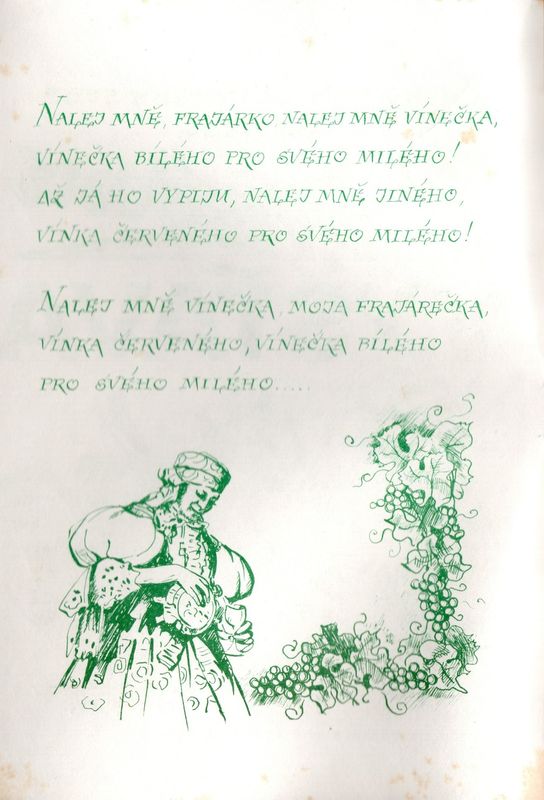 NALEJ MNĚ, FRAJÁRKO NALEJ MNĚ VÍNEČKA,
VÍNEČKA BÍLÉHO PRO SVÉHO MILÉHO!
AŽ JÁ HO VYPIJU, NALEJ MNĚ JINÉHO,
VÍNKA ČERVENÉHO PRO SVÉHO MILÉHO!
NALEJ MNĚ VÍNEČKA, MOJA FRAJÁREČKA,
VÍNKA ČERVENÉHO, VÍNEČKA BÍLÉHO
PRO SVÉHO MILÉHO.....